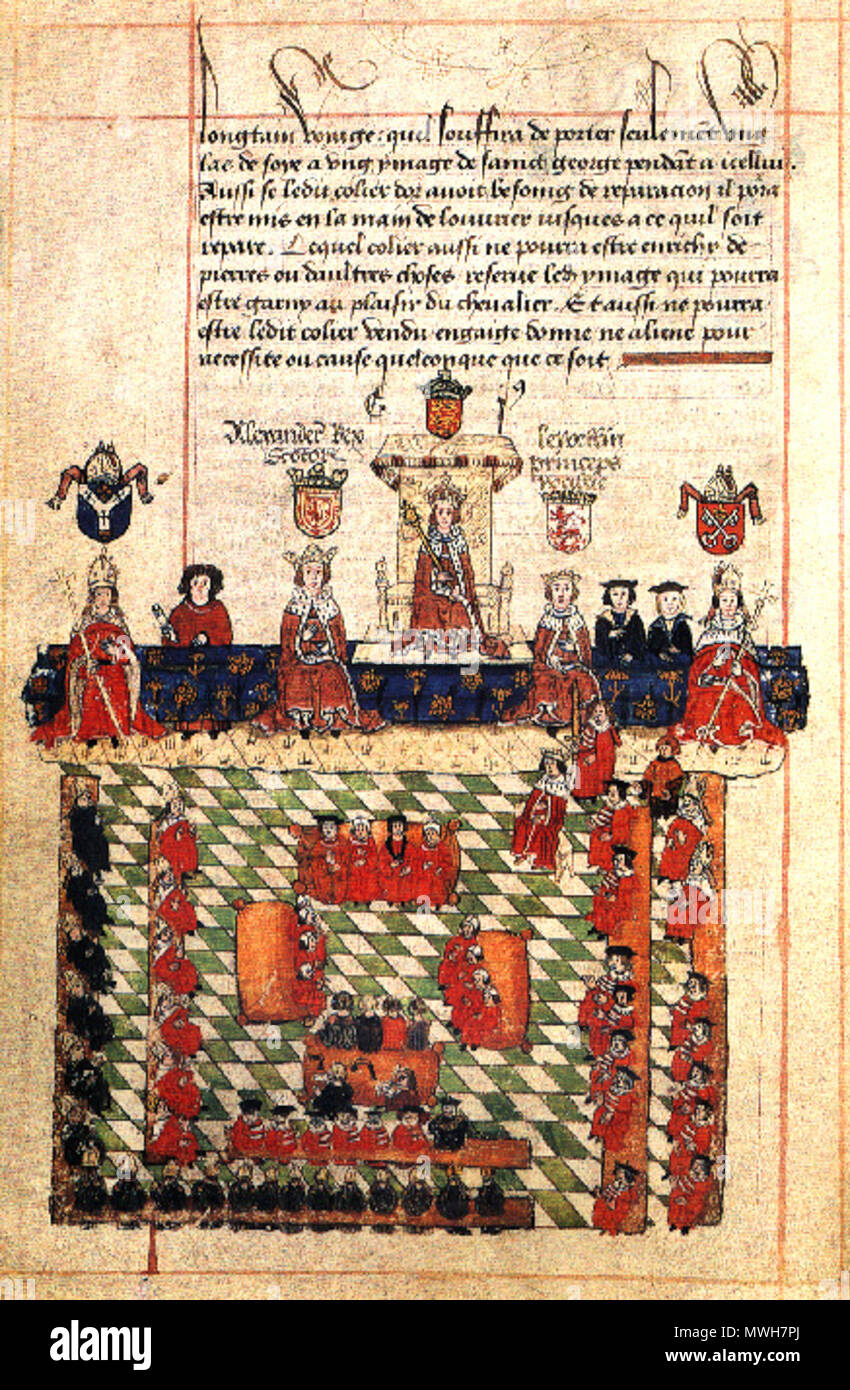 longtain voiage: quil souffira de porter seulement ung
lac de soye a ung ymage de sainct george pendãt a icellui.
Aussi se ledit colier dor auoit besoing de reparacion il porra
estre mis en la main de louurier iusques a ce quil soit
repare. Lequel colier aussi ne pourra estre enrichy de
pierres ou daultres choses reserue led ymage qui pourra
estre garny au plaisir du cheualier. Et aussi ne pourra
estre ledit colier vendu engaige donne ne aliene pour
necessite ou cause quelconque que ce soit
Alexander Rex
Scotor
princeps
alamy stock photo
Image ID: MWH7PJ
www.alamy.com